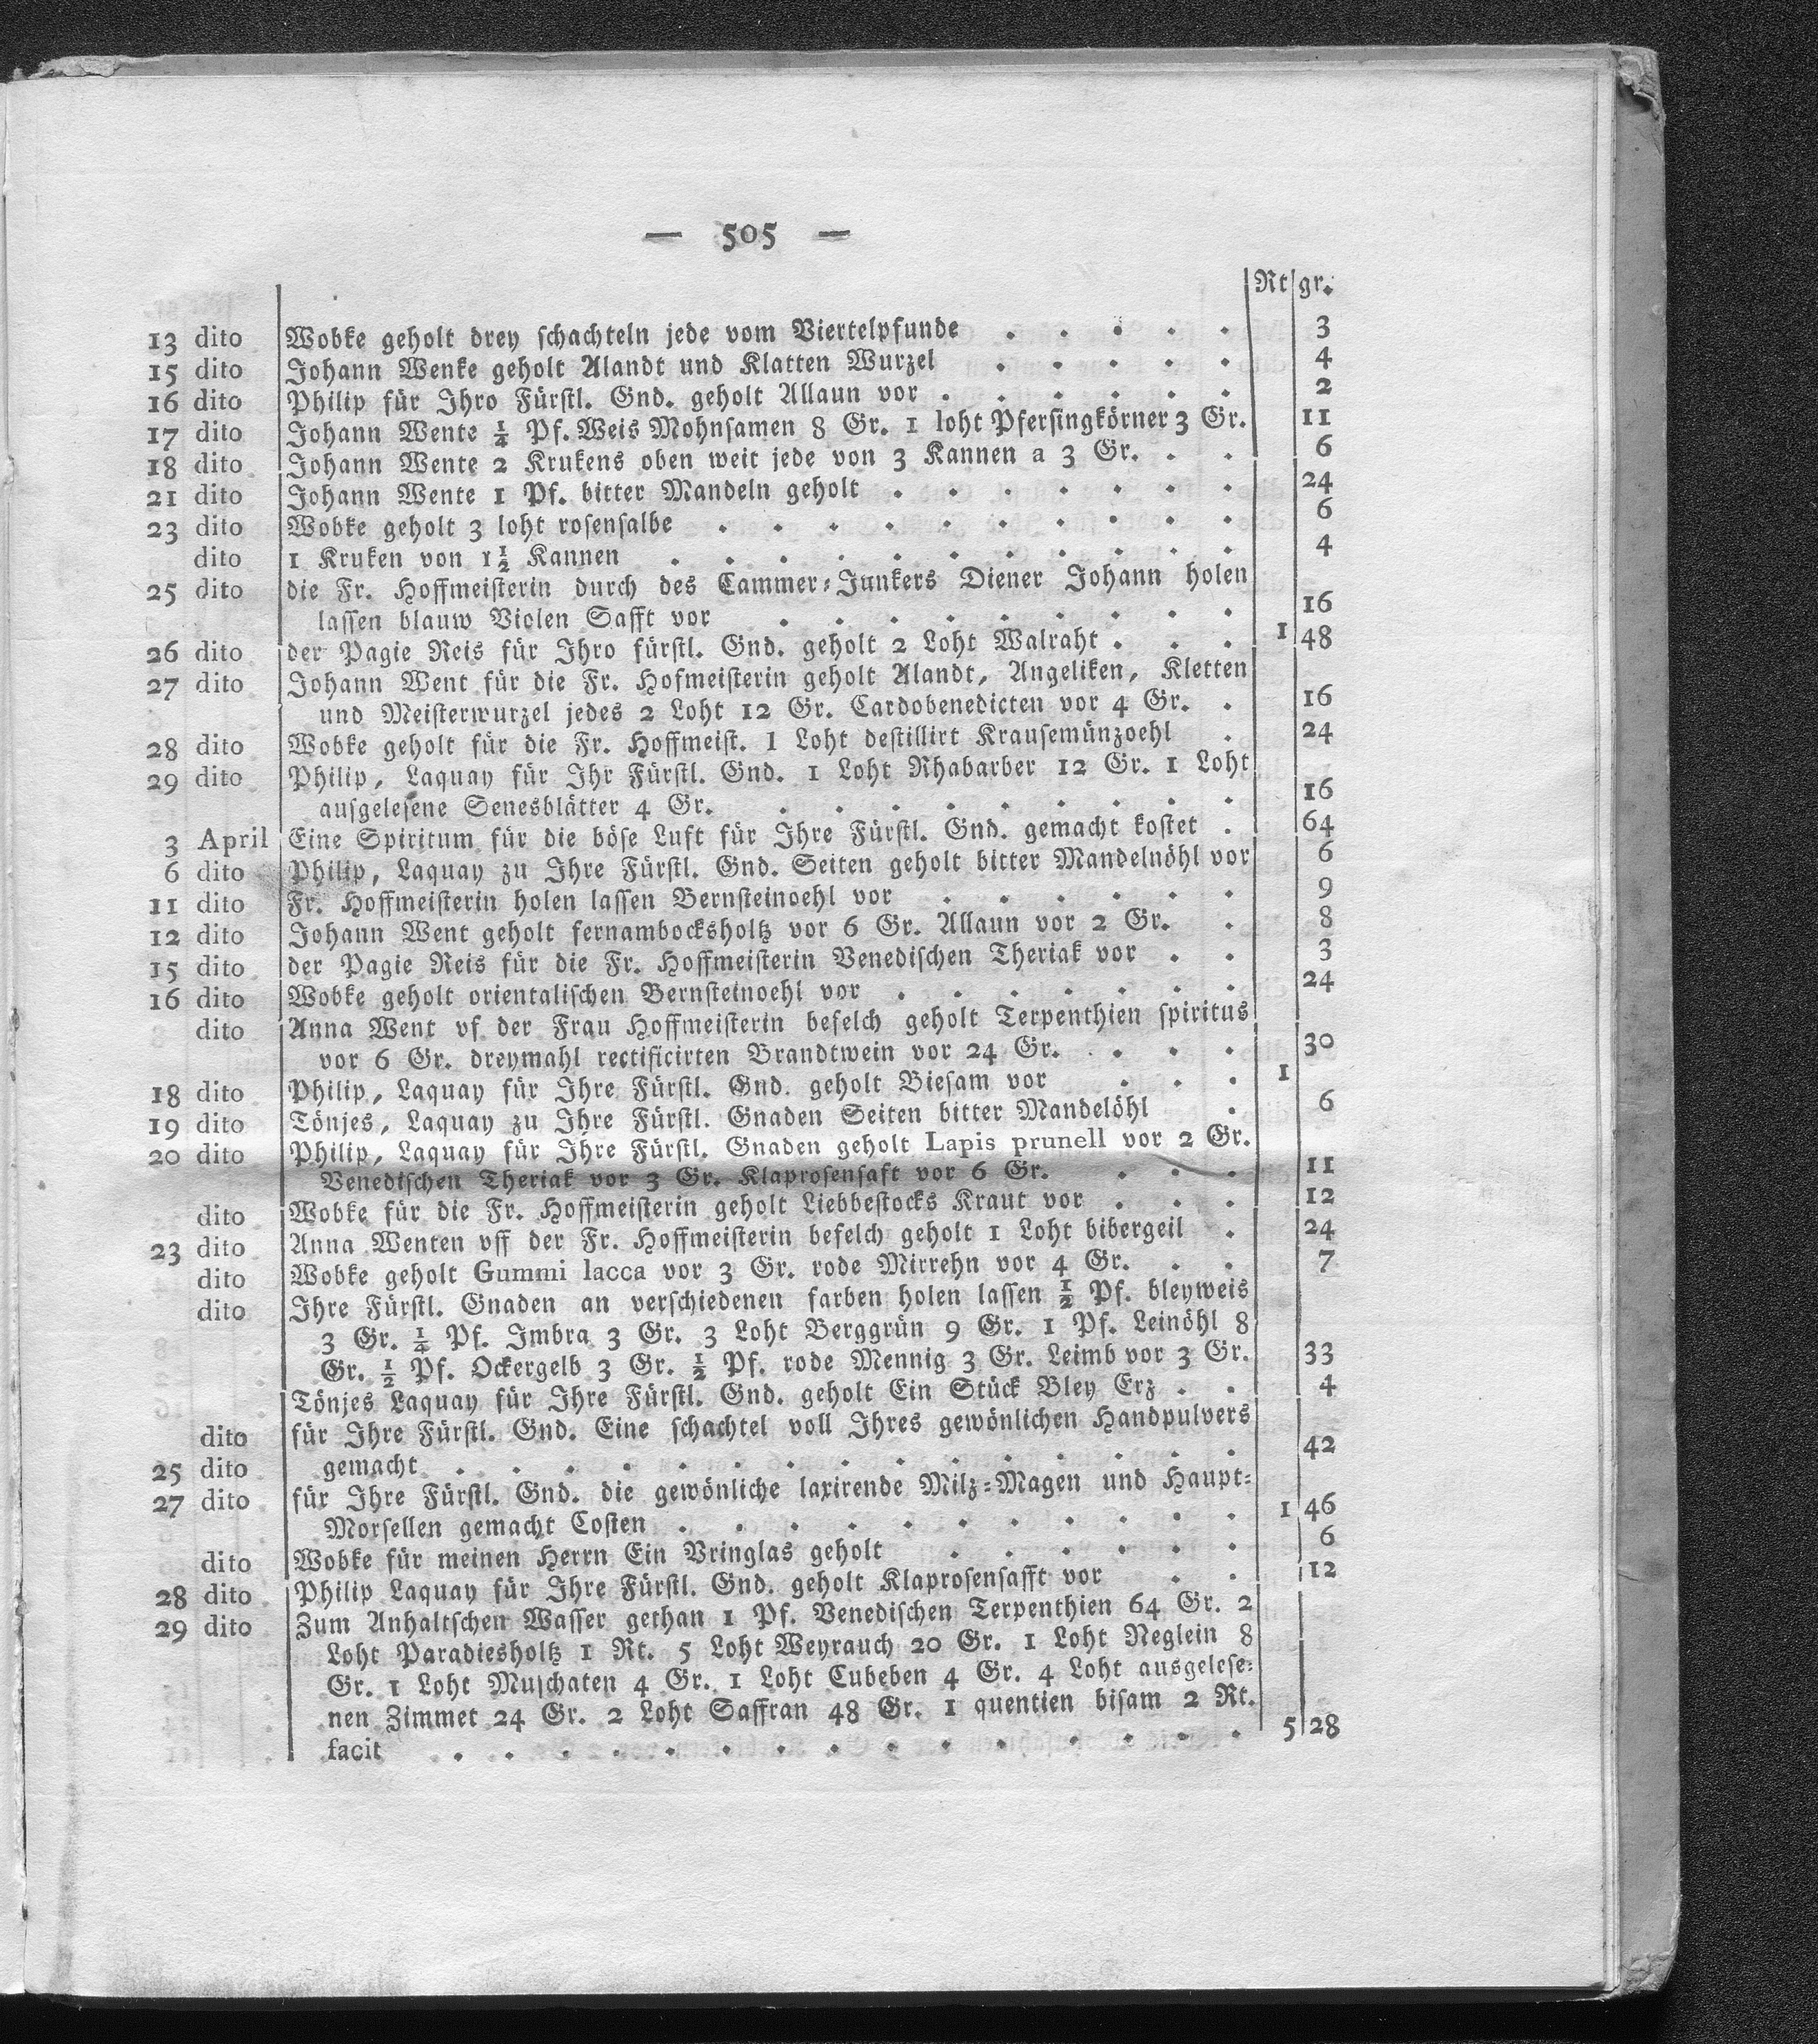 — 505 —
Rt gr.
13 dito Wobke geholt drey schachteln jede vom Viertelpfunde . . . . . 3
15 dito Johann Wenke geholt Alandt und Klatten Wurzel . . . . . 4
16 dito Philip für Ihro Fürstl. Gnd. geholt Allaun vor . . . . . . 2
17 dito Johann Wente 1/4 Pf. Weis Mohnsamen 8 Gr. 1 loht Pfersingkörner 3 Gr. 11
18 dito Johann Wente 2 Krukens oben weit jede von 3 Kannen a 3 Gr. . . 6
21 dito Johann Wente 1 Pf. bitter Mandeln geholt . . . . . . . 24
23 dito Wobke geholt 3 loht rosensalbe . . . . . . . . . . 6
dito 1 Kruken von 1 1/2 Kannen . . . . . . . . . . . 4
25 dito die Fr. Hoffmeisterin durch des Cammer-Junkers Diener Johann holen
lassen blauw Violen Safft vor . . . . . . . . . 16
26 dito der Pagie Reis für Ihro fürstl. Gnd. geholt 2 Loht Walraht . . . 1 48
27 dito Johann Went für die Fr. Hofmeisterin geholt Alandt, Angeliken, Kletten
und Meisterwurzel jedes 2 Loht 12 Gr. Cardobenedicten vor 4 Gr. . 16
28 dito Wobke geholt für die Fr. Hoffmeist. 1 Loht destillirt Krausemünzoehl . 24
29 dito Philip, Laquay für Ihr Fürstl. Gnd. 1 Loht Rhabarber 12 Gr. 1 Loht
ausgelesene Senesblätter 4 Gr. . . . . . . . . . 16
3 April Eine Spiritum für die böse Luft für Ihre Fürstl. Gnd. gemacht kostet . 64
6 dito Philip, Laquay zu Ihre Fürstl. Gnd. Seiten geholt bitter Mandelnöhl vor 6
11 dito Fr. Hoffmeisterin holen lassen Bernsteinoehl vor . . . . . . 9
12 dito Johann Went geholt fernambocksholtz vor 6 Gr. Allaun vor 2 Gr. . 8
15 dito der Pagie Reis für die Fr. Hoffmeisterin Venedischen Theriak vor . . 3
16 dito Wobke geholt orientalischen Bernsteinoehl vor . . . . . . . 24
dito Anna Went vf der Frau Hoffmeisterin befelch geholt Terpenthien spiritus
vor 6 Gr. dreymahl rectificirten Brandtwein vor 24 Gr. . . . 30
18 dito Philip, Laquay für Ihre Fürstl. Gnd. geholt Biesam vor . . . 1
19 dito Tönjes, Laquay zu Ihre Fürstl. Gnaden Seiten bitter Mandelöhl . 6
20 dito Philip, Laquay für Ihre Fürstl. Gnaden geholt Lapis prunell vor 2 Gr.
Venedischen Theriak vor 3 Gr. Klaprosensaft vor 6 Gr. . . . 11
dito Wobke für die Fr. Hoffmeisterin geholt Liebbestocks Kraut vor . . . 12
23 dito Anna Wenten vff der Fr. Hoffmeisterin befelch geholt 1 Loht bibergeil . 24
dito Wobke geholt Gummi lacca vor 3 Gr. rode Mirrehn vor 4 Gr. . . 7
dito Ihre Fürstl. Gnaden an verschiedenen farben holen lassen 1/2 Pf. bleyweis
3 Gr. 1/4 Pf. Imbra 3 Gr. 3 Loht Berggrün 9 Gr. 1 Pf. Leinöhl 8
Gr. 1/2 Pf. Ockergelb 3 Gr. 1/2 Pf. rode Mennig 3 Gr. Leimb vor 3 Gr. 33
Tönjes Laquay für Ihre Fürstl. Gnd. geholt Ein Stück Bley Erz . . 4
dito für Ihre Fürstl. Gnd. Eine schachtel voll Ihres gewönlichen Handpulvers
25 dito gemacht . . . . . . . . . . . . . . . 42
27 dito für Ihre Fürstl. Gnd. die gewönliche laxirende Milz-Magen und Haupt-
Morsellen gemacht Costen . . . . . . . . . . . 1 46
dito Wobke für meinen Herrn Ein Vringlas geholt . . . . . . 6
28 dito Philip Laquay für Ihre Fürstl. Gnd. geholt Klaprosensafft vor . . 12
29 dito Zum Anhaltschen Wasser gethan 1 Pf. Venedischen Terpenthien 64 Gr. 2
Loht Paradiesholtz 1 Rt. 5 Loht Weyrauch 20 Gr. 1 Loht Neglein 8
Gr. 1 Loht Muschaten 4 Gr. 1 Loht Cubeben 4 Gr. 4 Loht ausgelese-
nen Zimmet 24 Gr. 2 Loht Saffran 48 Gr. 1 quentien bisam 2 Rt.
facit . . . . . . . . . . . . . . . 5 28